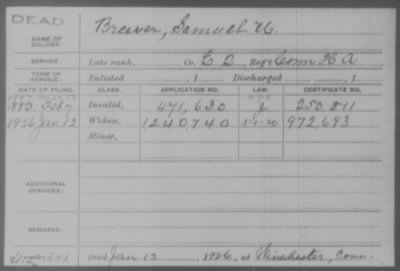 DEAD
NAME OF SOLDIER: Samuel
SERVICE: Late rank, Co. Reg't Conn H A
TERM OF SERVICE: Enlisted , 1 Discharged , 1
DATE OF FILING. CLASS. APPLICATION NO. LAW. CERTIFICATE NO.
1883 Invalid, 471,630 250,811
1926 Jan 12 Widow, 1240,740 5-1-20 972,693
Minor,
ADDITIONAL SERVICES:
REMARKS:
Died Jan 13, 1926, at Winchester, Conn.